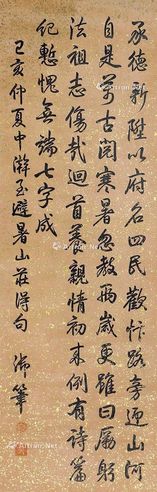 承德新陞以府名四民歡忭路旁迎山河
自是萬古閱寒暑忽教兩歲更雖曰厲躬
法祖志傷哉迴首養親情初來例有詩篇
紀慙愧無端七字成
己亥仲夏中澣至避暑山莊得句 御筆